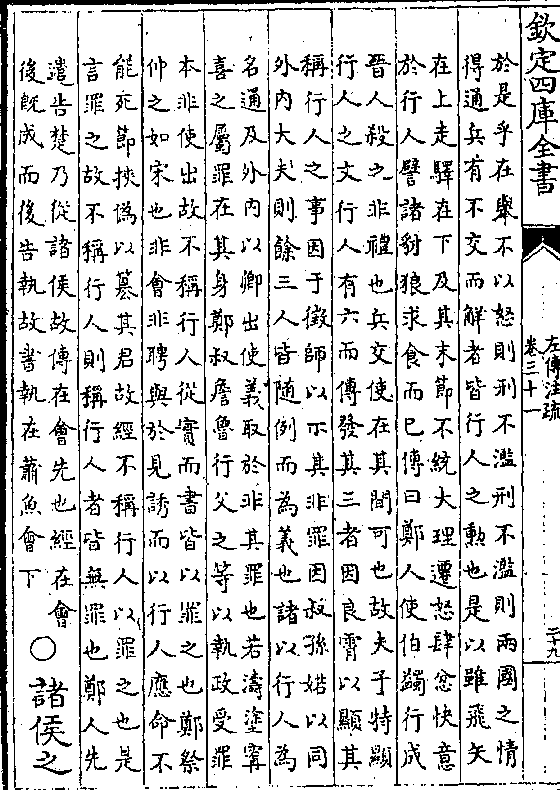 欽定四庫全書
左傳注疏
卷三十一
二十九
於是乎在舉不以怒則刑不濫刑不濫則兩國之情
得通兵有不交而解者皆行人之勲也是以雖飛矢
在上走驛在下及其末節不統大理遷怒肆忿快意
於行人譬諸豺狼求食而已傳曰鄭人使伯蠲行成
晉人殺之非禮也兵交使在其間可也故夫子特顯
行人之文行人有六而傳發其三者因良霄以顯其
稱行人之事因于徵師以示其非罪因叔孫婼以同
外内大夫則餘三人皆随例而為義也諸以行人為
名通及外内以卿出使義取於非其罪也若濤塗甯
喜之屬罪在其身鄭叔詹魯行父之等以執政受罪
本非使出故不稱行人從實而書皆以罪之也鄭祭
仲之如宋也非會非聘與於見誘而以行人應命不
能死節挾偽以簒其君故經不稱行人以罪之也是
言罪之故不稱行人則稱行人者皆無罪也鄭人先
遣告楚乃從諸侯故傳在會先也經在會
後既成而後告執故書執在蕭魚會下○諸侯之